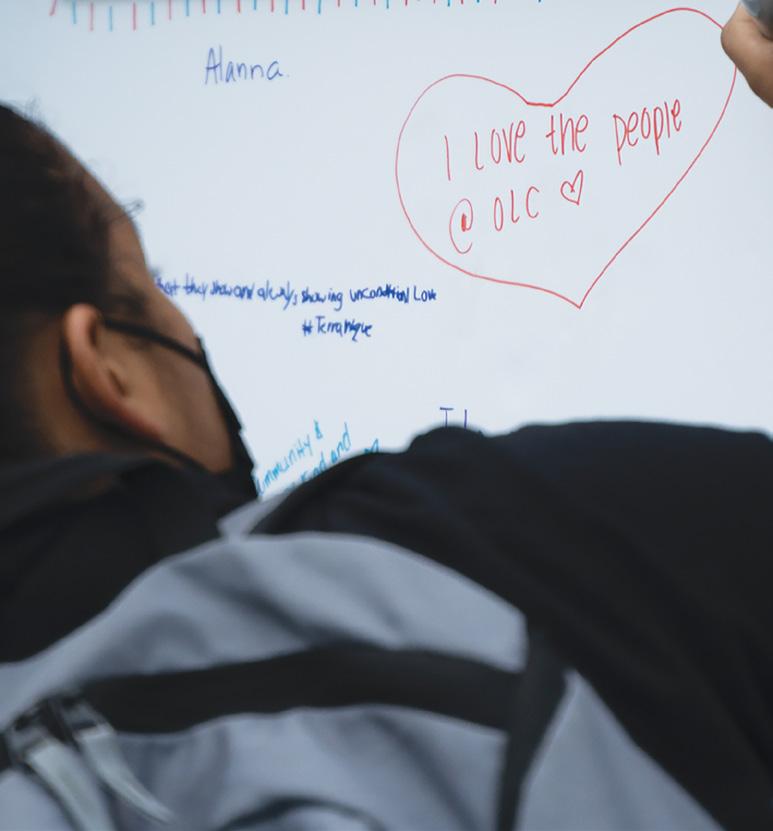 Alanna.
I love the people
@ OLC ♡
they show and always showing uncondition Love
#Terranique
&
kind and